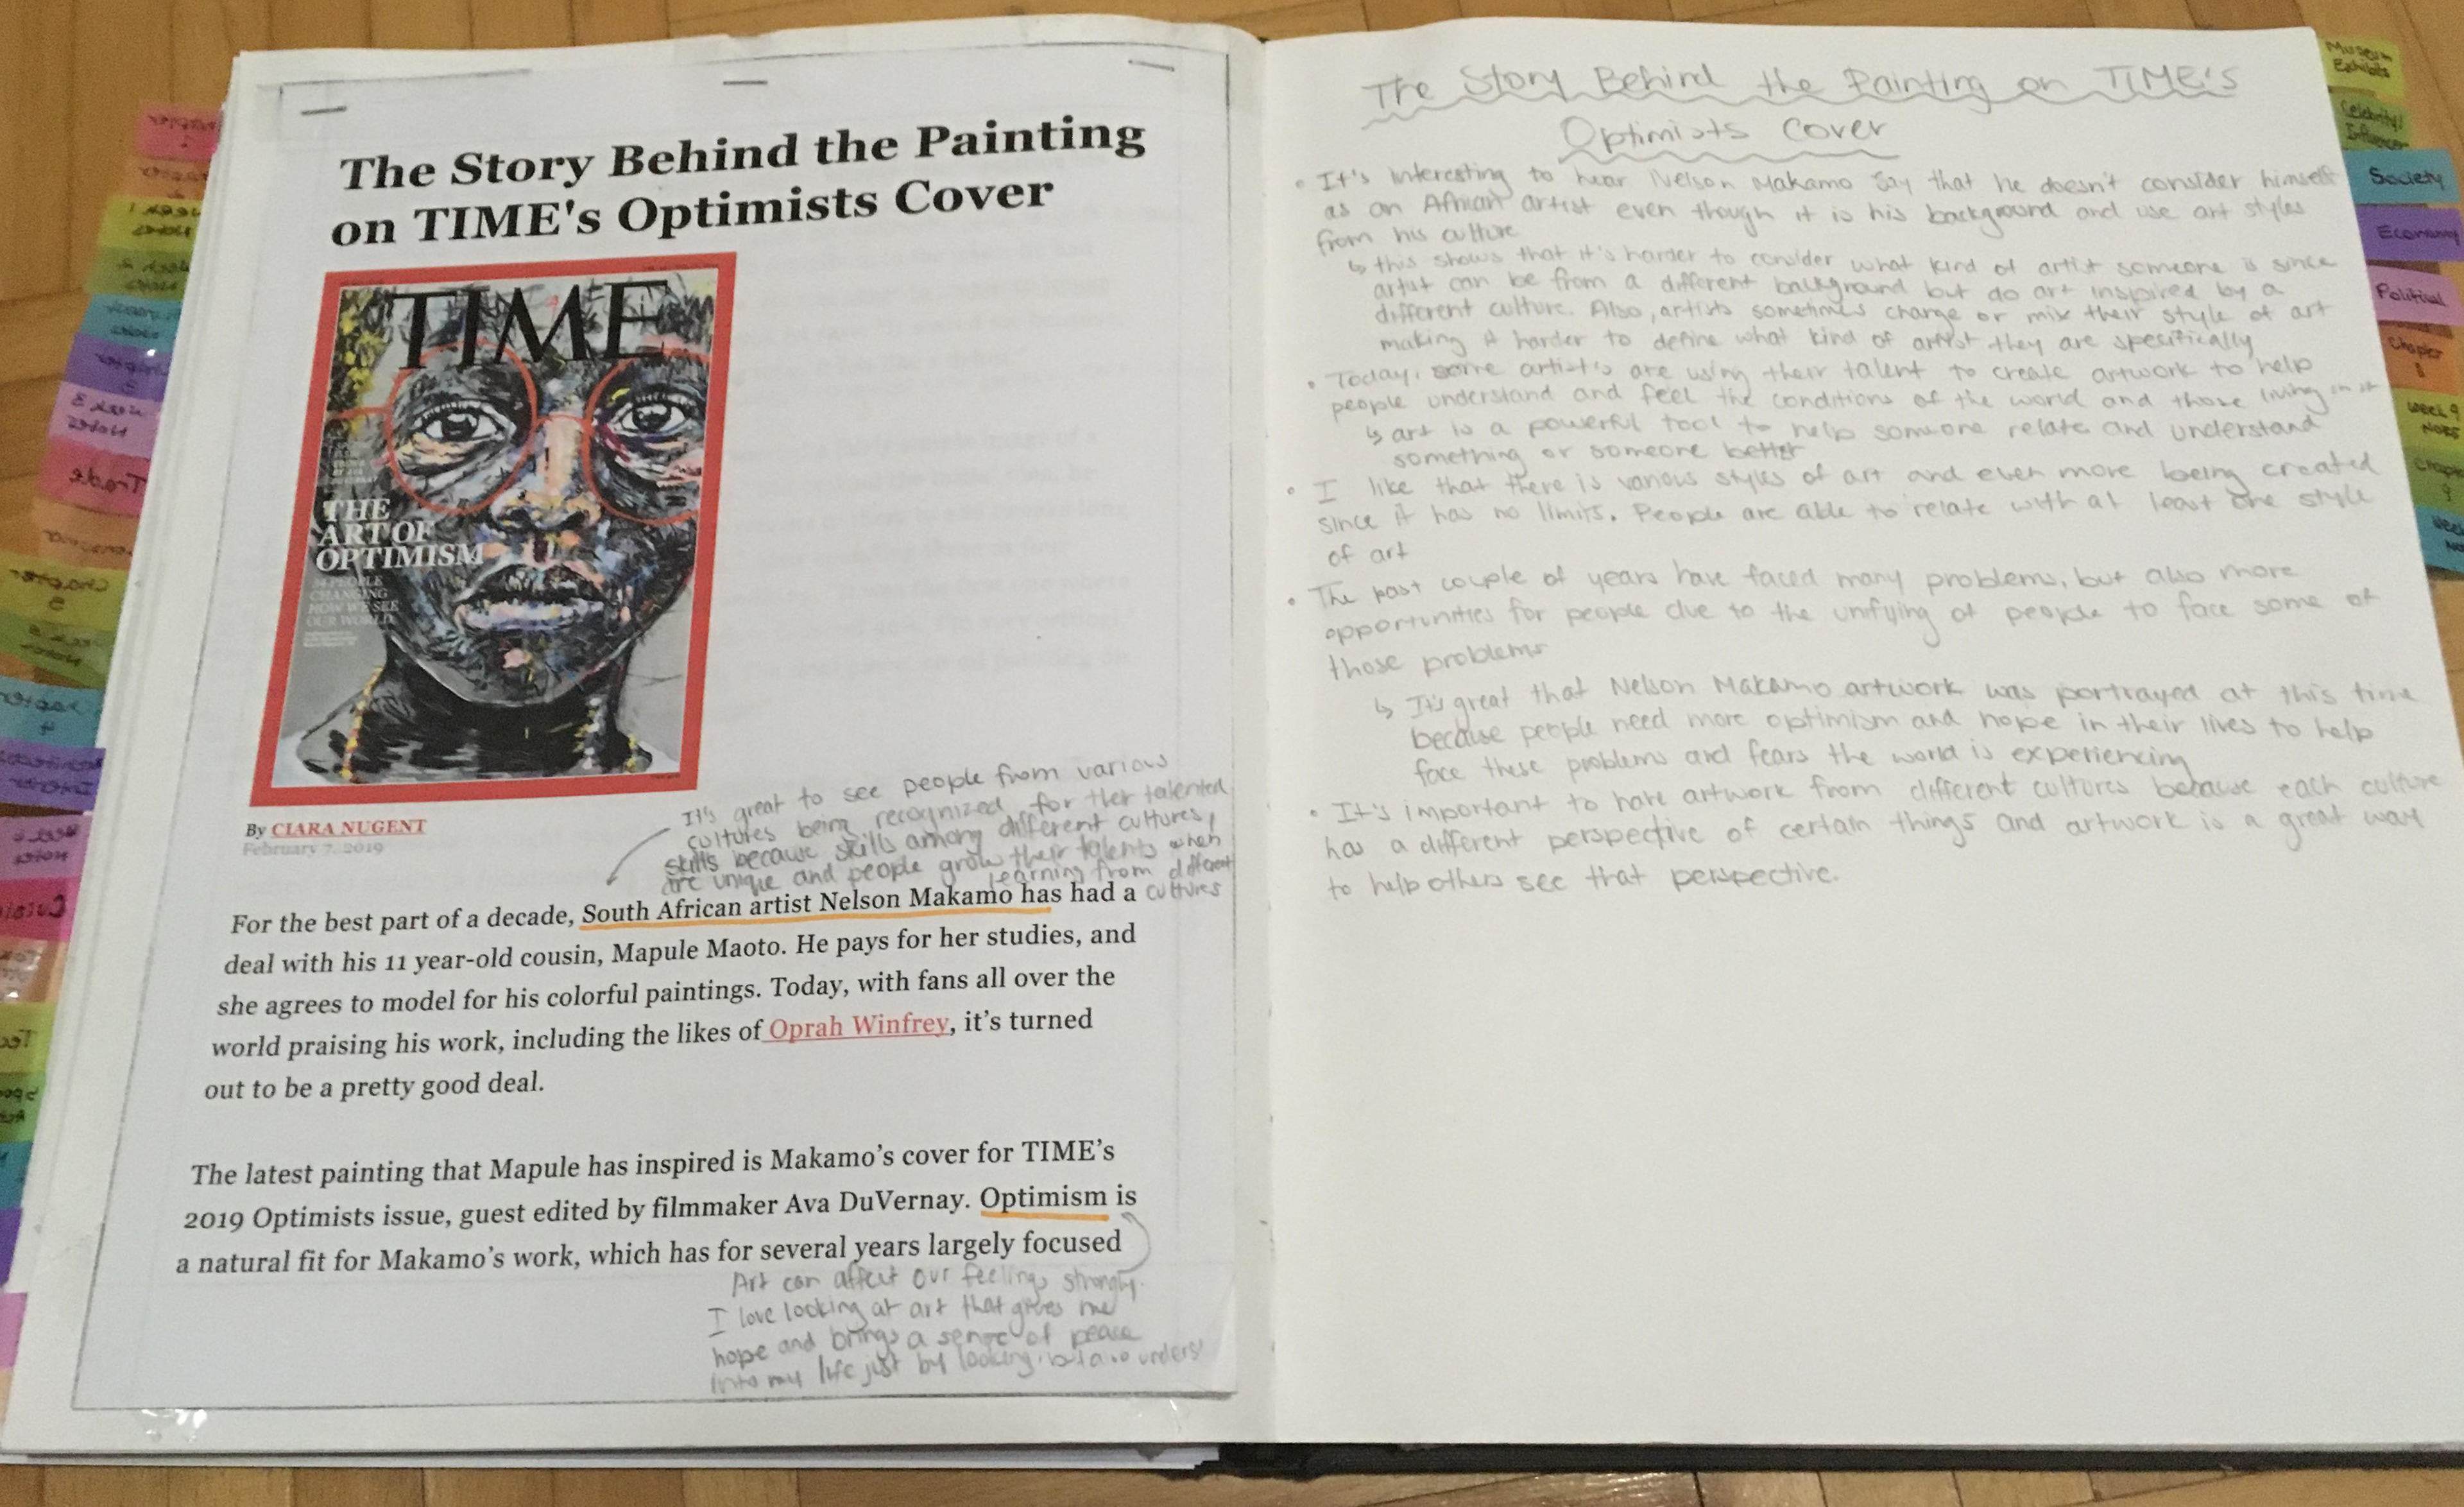 The Story Behind the Painting
on TIME's Optimists Cover
TIME
THE
ART OF
OPTIMISM
34 PEOPLE
CHANGING
HOW WE SEE
OUR WORLD
By CIARA NUGENT
February 7, 2019
It's great to see people from various
cultures being recognized for ther talented
skills because skills among different cultures,
are unique and people grow their talents when
learning from different
cultures
For the best part of a decade, South African artist Nelson Makamo has had a
deal with his 11 year-old cousin, Mapule Maoto. He pays for her studies, and
she agrees to model for his colorful paintings. Today, with fans all over the
world praising his work, including the likes of Oprah Winfrey, it's turned
out to be a pretty good deal.
The latest painting that Mapule has inspired is Makamo's cover for TIME's
2019 Optimists issue, guest edited by filmmaker Ava DuVernay. Optimism is
a natural fit for Makamo's work, which has for several years largely focused
Art can affect our feelings strongly.
I love looking at art that gives me
hope and brings a sense of peace
into my life just by looking, but also
The Story Behind the Painting on TIME's
Optimists Cover
• It's interesting to hear Nelson Makamo say that he doesn't consider himself
as an African artist even though it is his background and use art styles
from his culture
↳ this shows that it's harder to consider what kind of artist someone is since
artist can be from a different background but do art inspired by a
different culture. Also, artists sometimes change or mix their style of art
making it harder to define what kind of artist they are specifically
• Today, some artist's are using their talent to create artwork to help
people understand and feel the conditions of the world and those living in it
↳ art is a powerful tool to help someone relate and understand
something or someone better
• I like that there is various styles of art and even more being created
since it has no limits. People are able to relate with at least one style
of art
• The past couple of years have faced many problems, but also more
opportunities for people due to the unifying of people to face some of
those problems
↳ It's great that Nelson Makamo artwork was portrayed at this time
because people need more optimism and hope in their lives to help
face these problems and fears the world is experiencing
• It's important to have artwork from different cultures because each culture
has a different perspective of certain things and artwork is a great way
to help others see that perspective.
Museum
Exhibits
Celebrity/
Influencer
Society
Economy
Political
Chapter
8
Week 9
Notes
Chapter
9